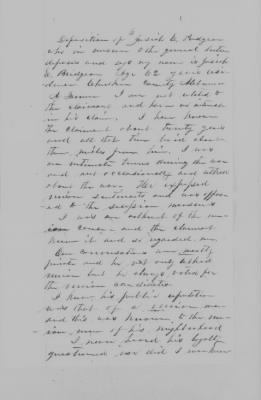 Deposition of Josiah C. Bridges
who in answer to the general Inter
deposes and says my name is Josiah
C. Bridges Age 62 years
Cherokee County Alabama
A Farmer I am not related to
the claimant and have no interest
in his claim. I have known
the claimant about twenty years
and all that time lived about
three miles from him. I was
an intimate terms during the war
and met occasionally and talked
about the war. He expressed
union sentiments and was oppos
ed to the secession movement
I was an adherent of the un
ion cause and the claimant
knew it and so regarded me.
Our conversations were mostly
private and he not only talked
union but he always voted for
the union candidates
I know his public reputation
was that of a union man
and this was known to the un
ion men of his neighborhood
I never heard his loyalty
questioned nor did I ever